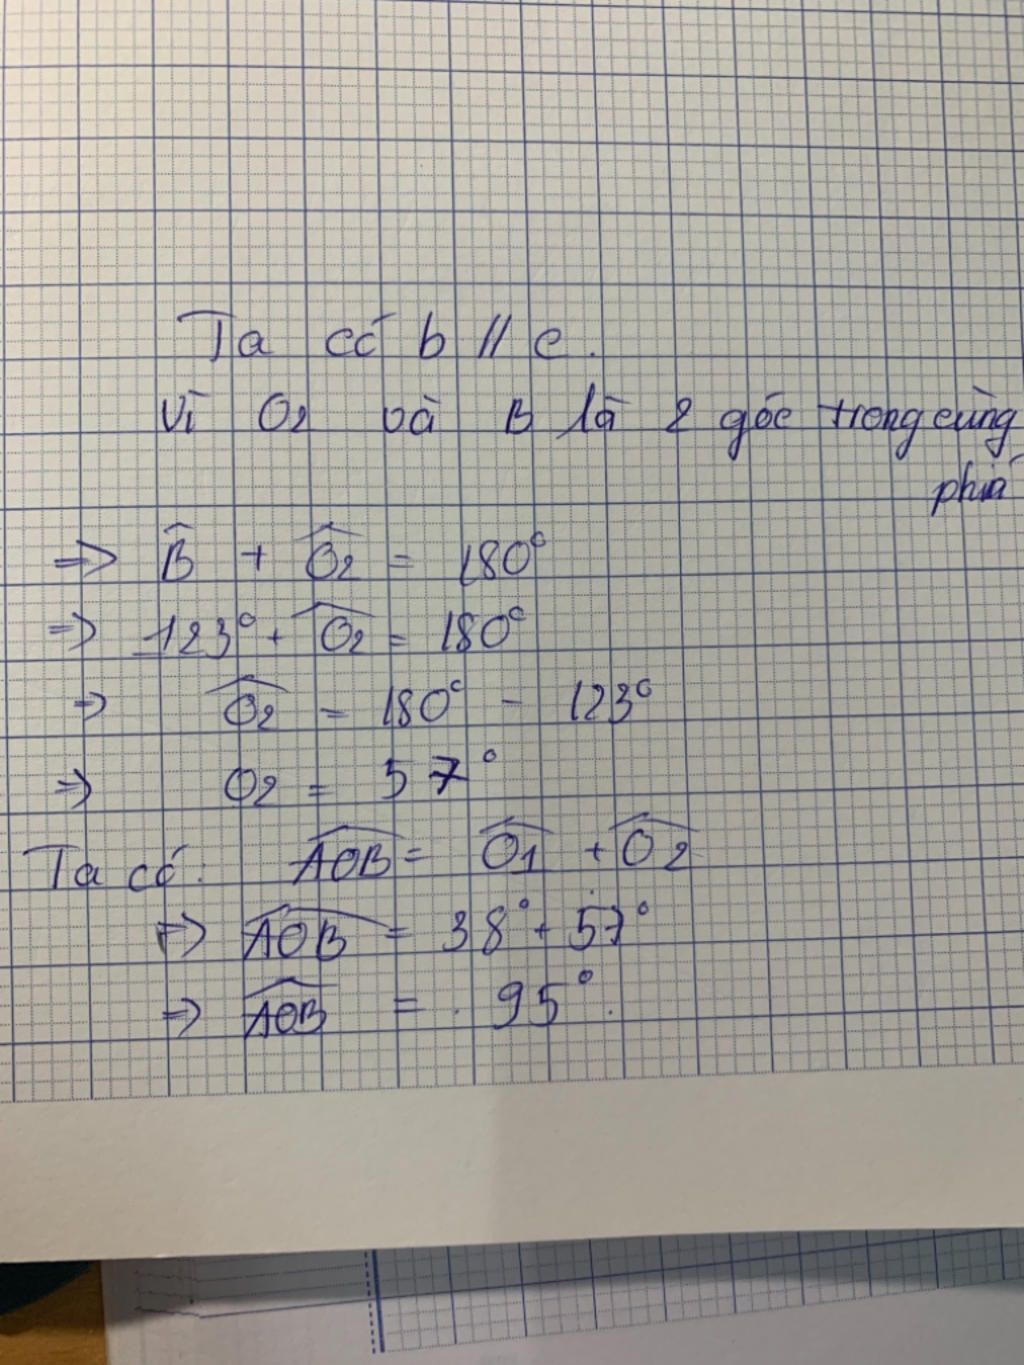 Ta có b // c.
Vì O2 và B là 2 góc trong cùng
phía
=> B̂ + Ô2 = 180°
=> 123° + Ô2 = 180°
=> Ô2 = 180° - 123°
=> O2 = 57°
Ta có: AOB̂ = Ô1 + Ô2
=> AOB̂ = 38° + 57°
=> AOB̂ = 95°.